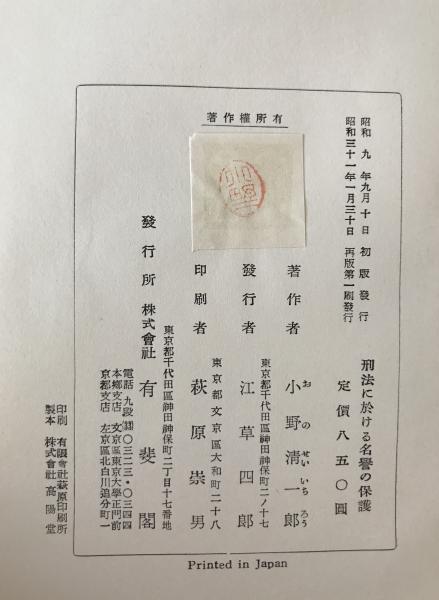 著作權所有
昭和九年九月十日 初版發行
昭和三十一年一月三十日 再版第一刷發行
刑法に於ける名譽の保護
定價八五〇圓
著作者 小野淸一郎
お の せい いち ろう
東京都千代田區神田神保町二ノ十七
發行者 江草四郎
東京都文京區大和町二十八
印刷者 萩原崇男
東京都千代田區神田神保町二丁目十七番地
發行所 株式會社 有斐閣
電話 九段(33)〇三二三・〇三四四
本鄕支店 文京區東京大學正門前
京都支店 左京區北白川追分町一
印刷 有限會社萩原印刷所
製本 株式會社高陽堂
Printed in Japan